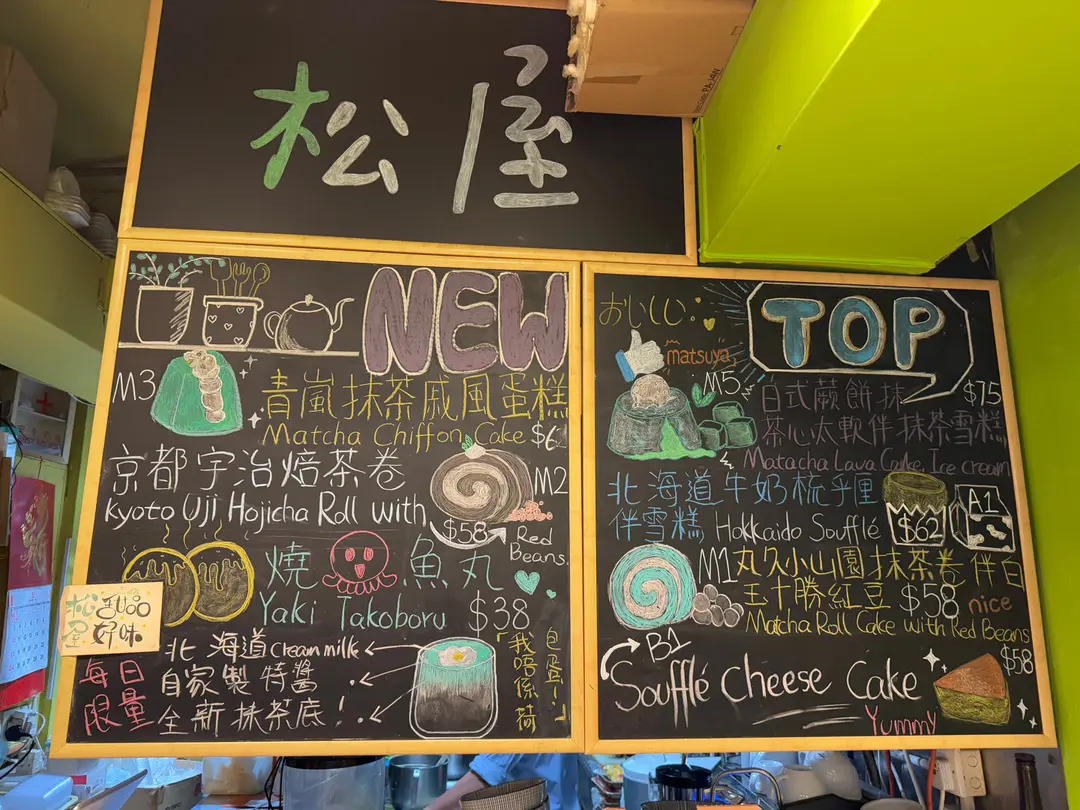 松屋
NEW
M3
青嵐抹茶戚風蛋糕
Matcha Chiffon Cake $6
京都宇治焙茶卷
M2
Kyoto Uji Hojicha Roll with
$58
Red
Beans
燒魚丸
Yaki Takoboru $38
北海道 cream milk
自家製特醬
全新抹茶底!
每日
限量
「我唔係荷
包蛋!」
松屋
好味
おいしい
TOP
matsuya
M5
$75
白式蕨餅抹
茶心太軟伴抹茶雪糕
Matacha Lava Cake, Ice cream
北海道牛奶梳乎厘
伴雪糕 Hokkaido Soufflé
$62
A1
M1 丸久小山園抹茶卷伴白
玉十勝紅豆 $58 nice
Matcha Roll Cake with Red Beans
B1
$58
Soufflé Cheese Cake
Yummy